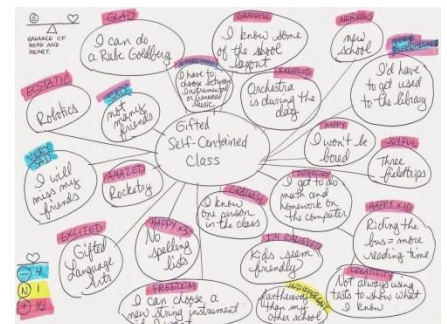 BALANCE OF
HEAD AND
HEART.
GLAD
I can do
a Rube Goldberg
GRATEFUL
I know some
of the school
layout
NERVOUS
new
school
I'd have
to get used
to the library
ECSTATIC
Robotics
SAD
not many
friends
I have to
choose between
Instrumental
or General
Music
RELIEVED
Orchestra
is during the
day
HAPPY
I won't be
bored
JOYFUL
Three
fieldtrips
Gifted
Self-Contained
Class
VERY
SAD
I will
miss my
friends
AMAZED
Rocketry
GRATEFUL
I know
one person
in the class
I get to do
math and
homework on
the computer
HAPPY X10
Riding the
bus = more
reading time
EXCITED
Gifted
Language
Arts
HAPPY X3
No
spelling
lists
I'M RELIEVED
Kids seem
friendly
CREATIVITY
Not always
using
tests to show
what I
know
FREEDOM
I can choose a
new string instrument
if I want
INDIFFERENT
farther away
than my
other school
- 4
N 1
+ 16